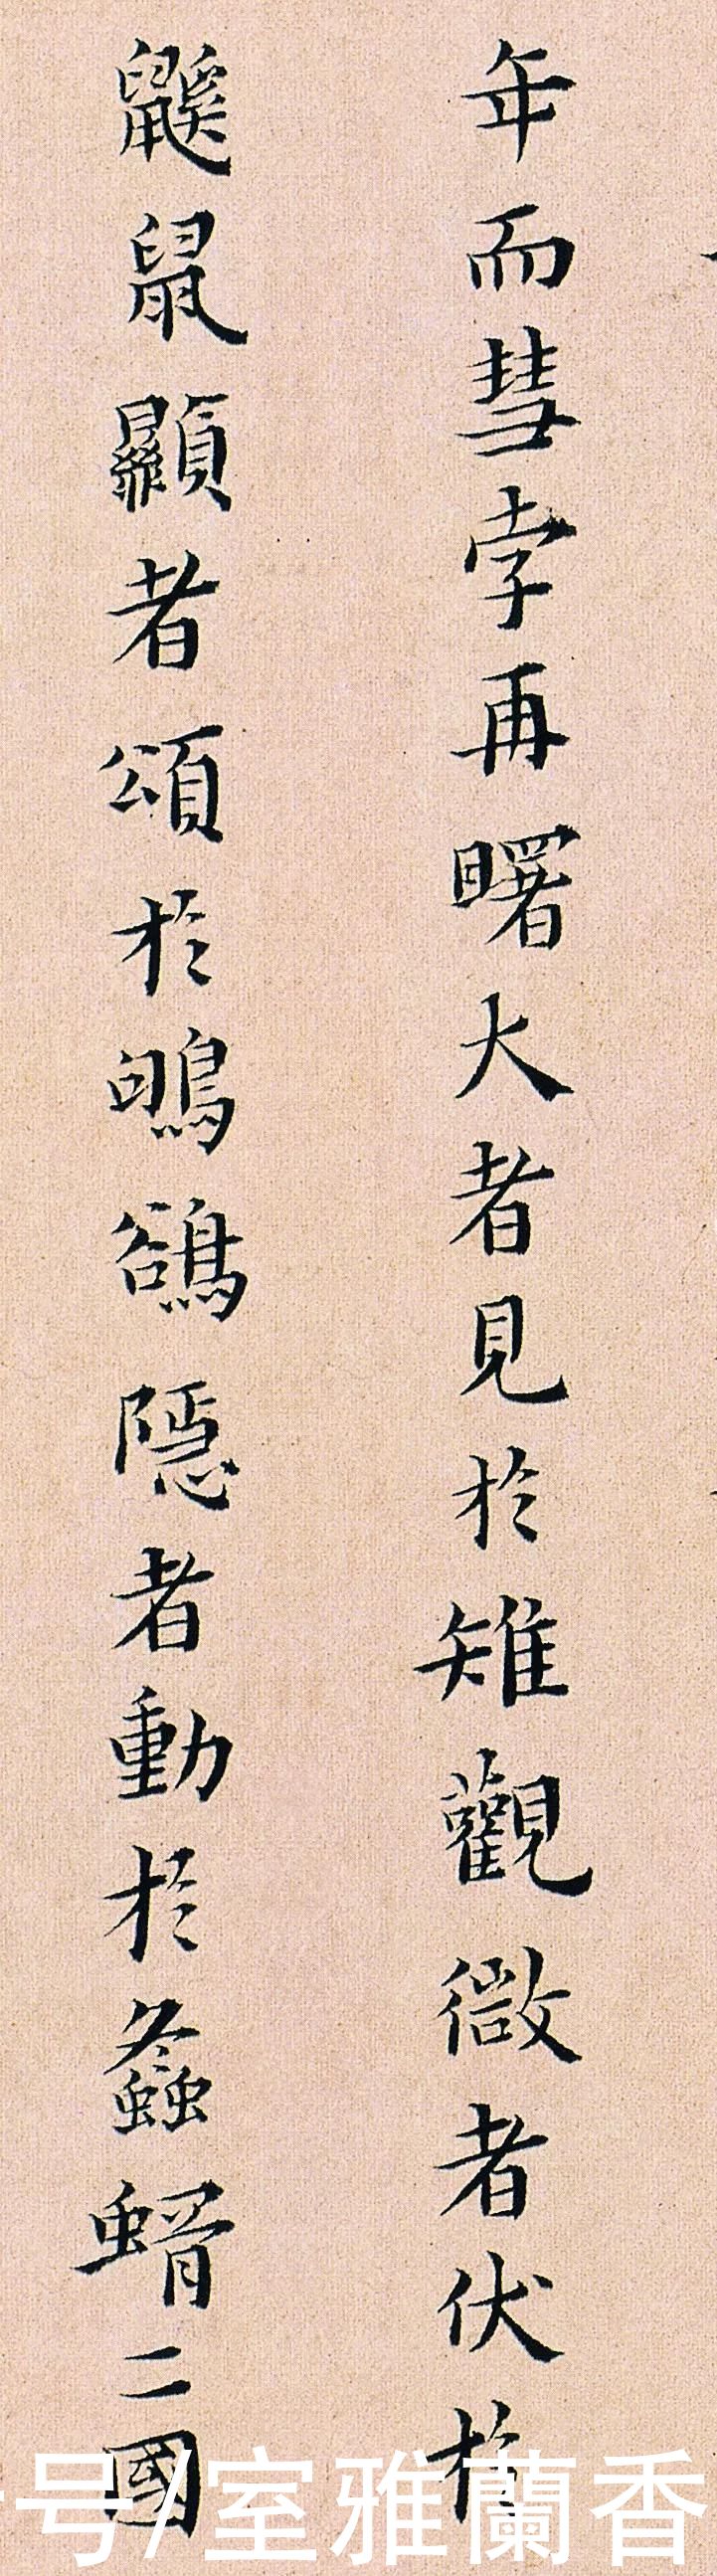 年而彗孛再曙大者見於雉觀微者伏於
鼷鼠顯者頌於鴝鵒隱者動於螽蝑二國
号/室雅蘭香